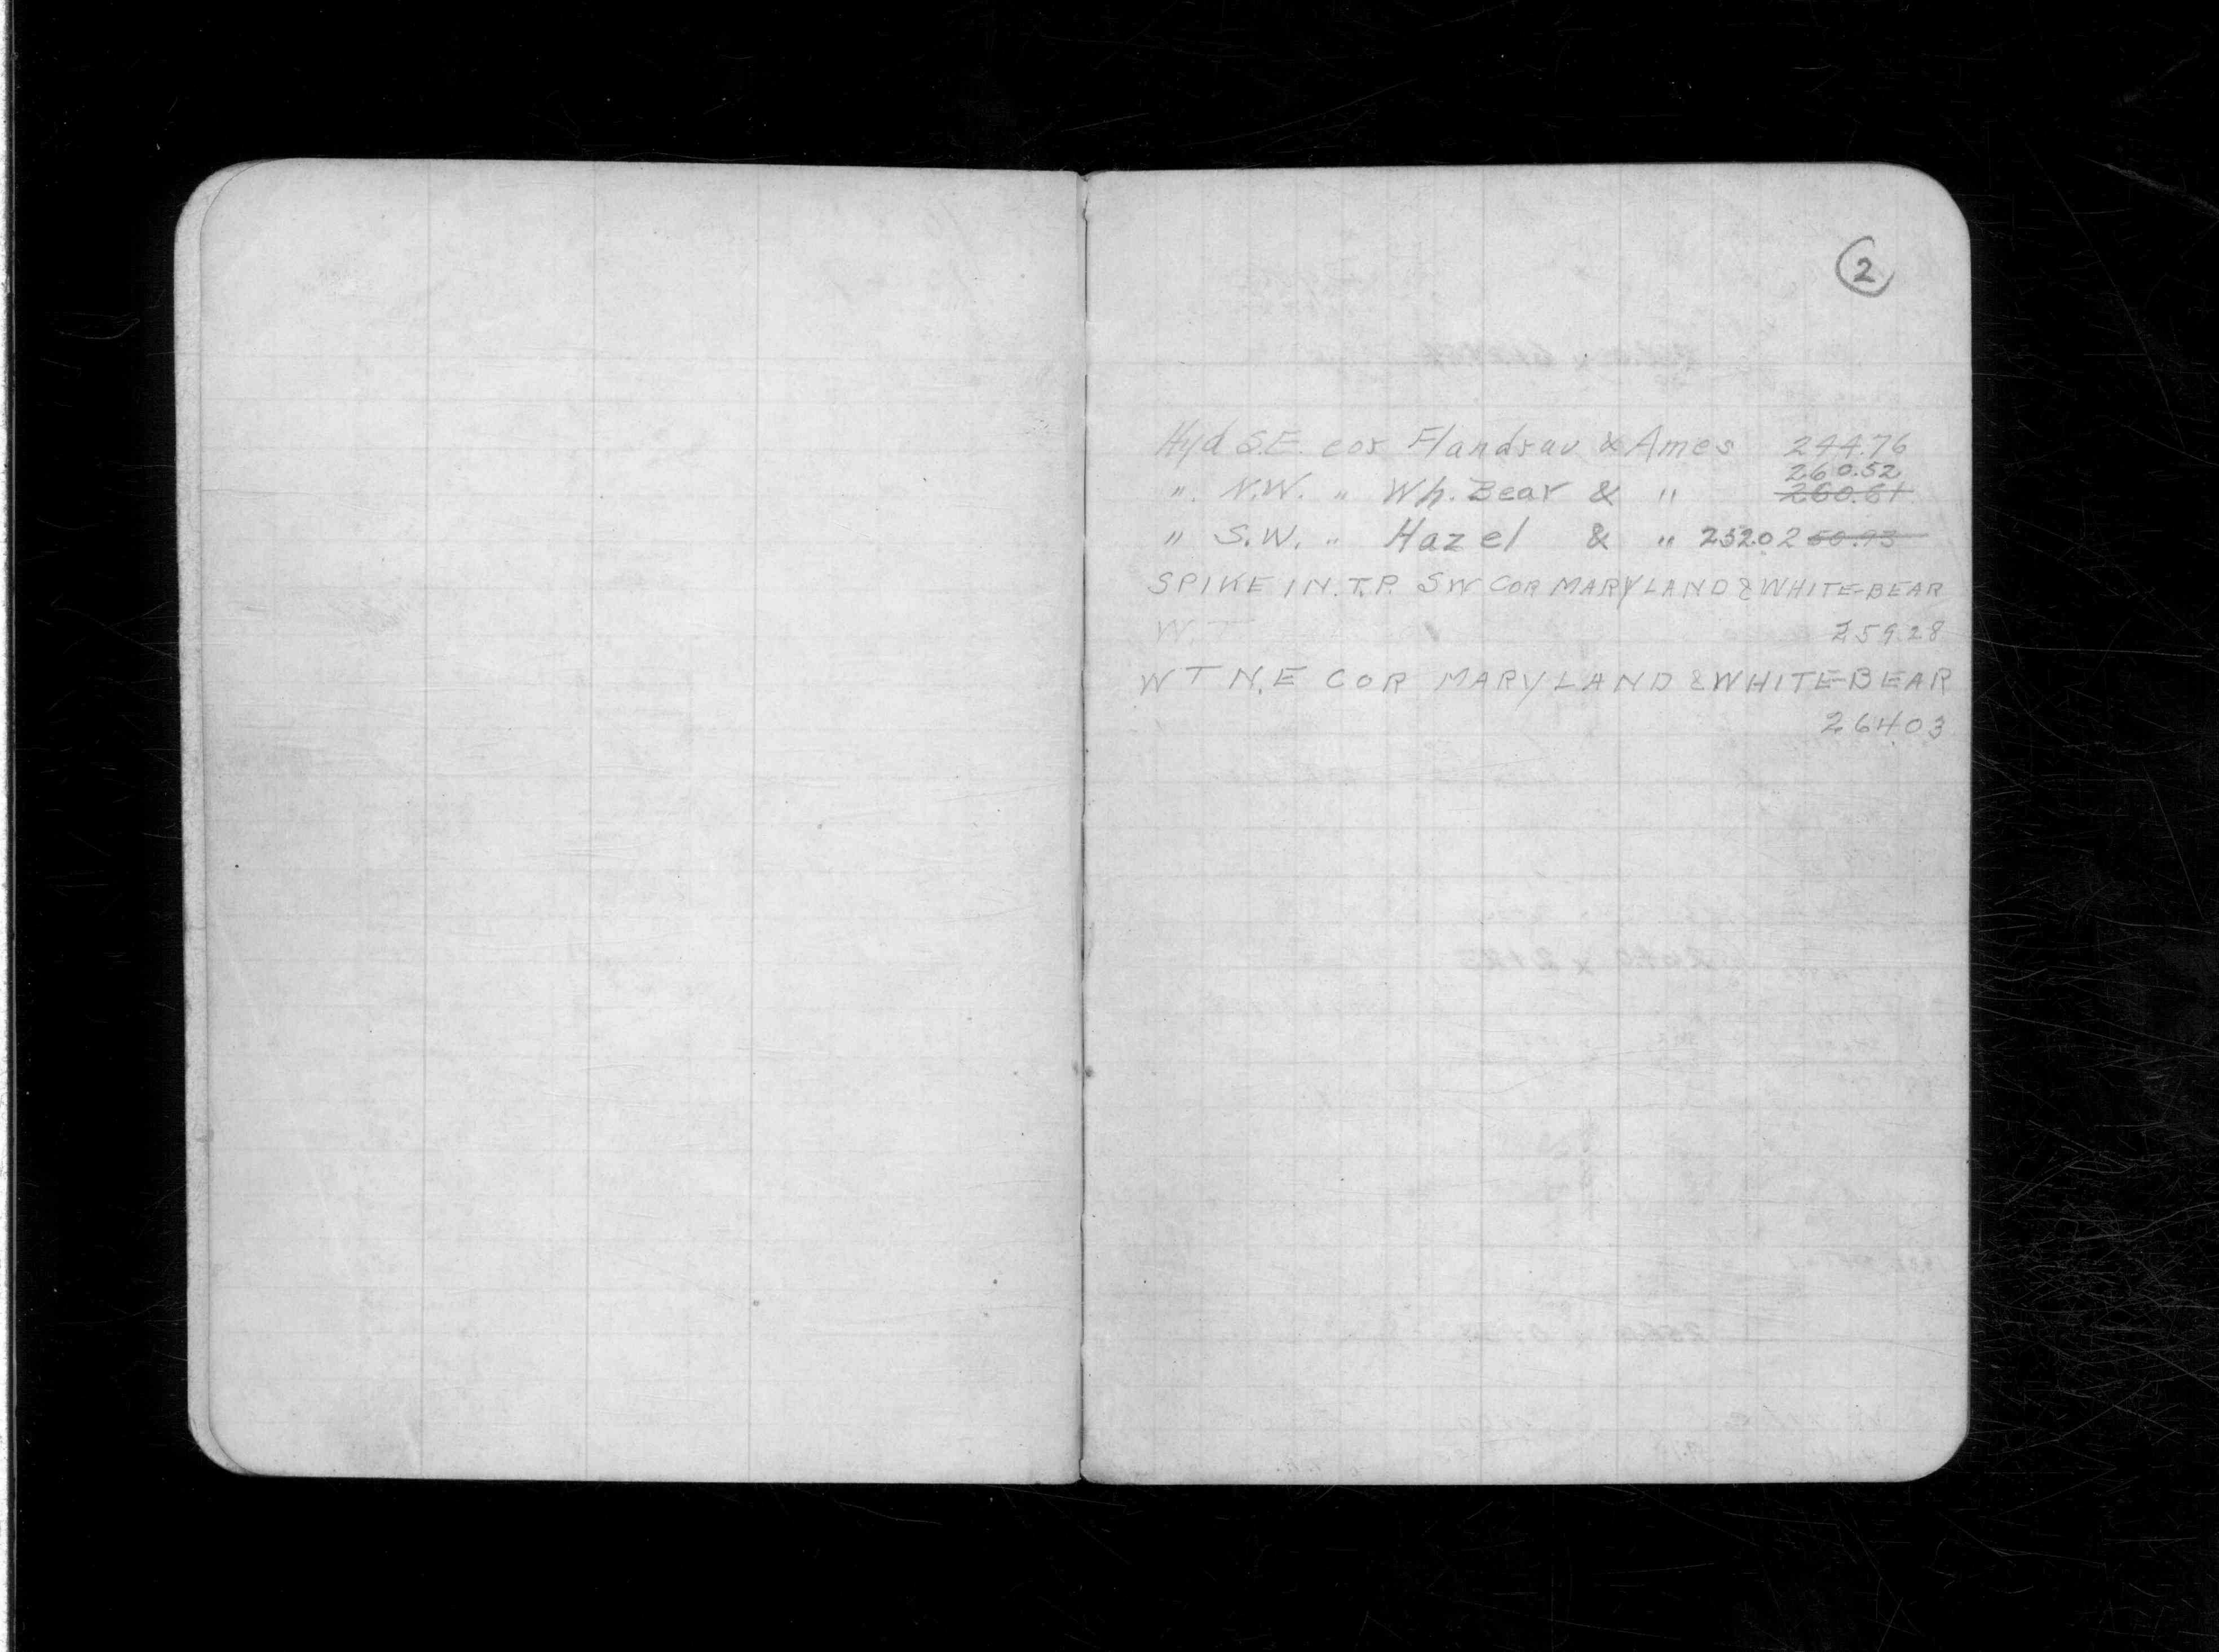 2
Hyd S.E. cor Flandrau & Ames 244.76
260.52
". N.W. " Wh. Bear & " 260.61
" S.W. " Hazel & " 252.02 50.93
SPIKE IN. T.P. SW COR MARYLAND & WHITE-BEAR
W.T 259.28
WT N.E COR MARYLAND & WHITE-BEAR
264.03